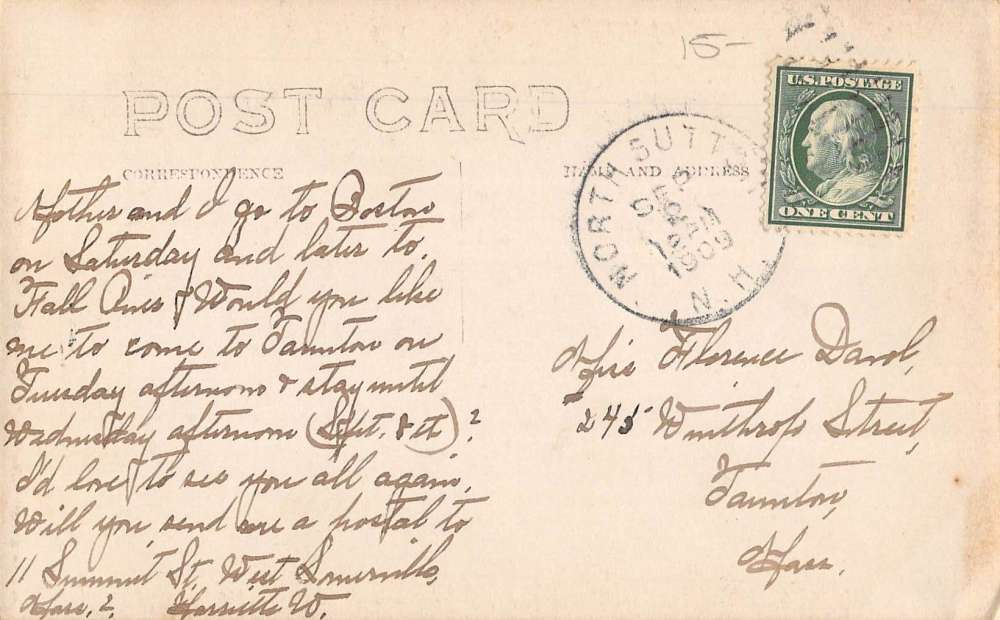 15-
POST CARD
U.S. POSTAGE
ONE CENT
NORTH SUTTON
1909
N.H.
CORRESPONDENCE
NAME AND ADDRESS
Mother and I go to Boston
on Saturday and later to
Fall River. Would you like
me to come to Taunton on
Tuesday afternoon & stay until
Wednesday afternoon (Sept. 8th)?
I'd love to see you all again.
Will you send me a postal to
11 Summit St. West Somerville,
Mass.? Harriette W.
Miss Florence Darol,
245 Winthrop Street,
Taunton,
Mass.